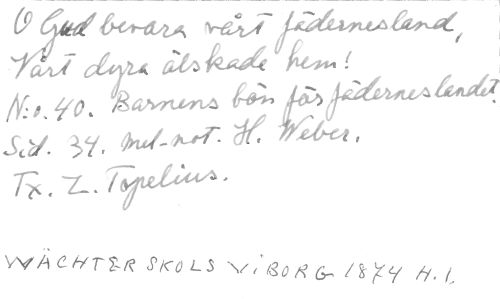 O Gud bevara vårt fädernesland,
Vårt dyra älskade hem!
N:o. 40. Barnens bön för fäderneslandet.
Sid. 34. mel-not. H. Weber.
Tx. Z. Topelius.
WÄCHTER SKOLS VIBORG 1874 H.I.